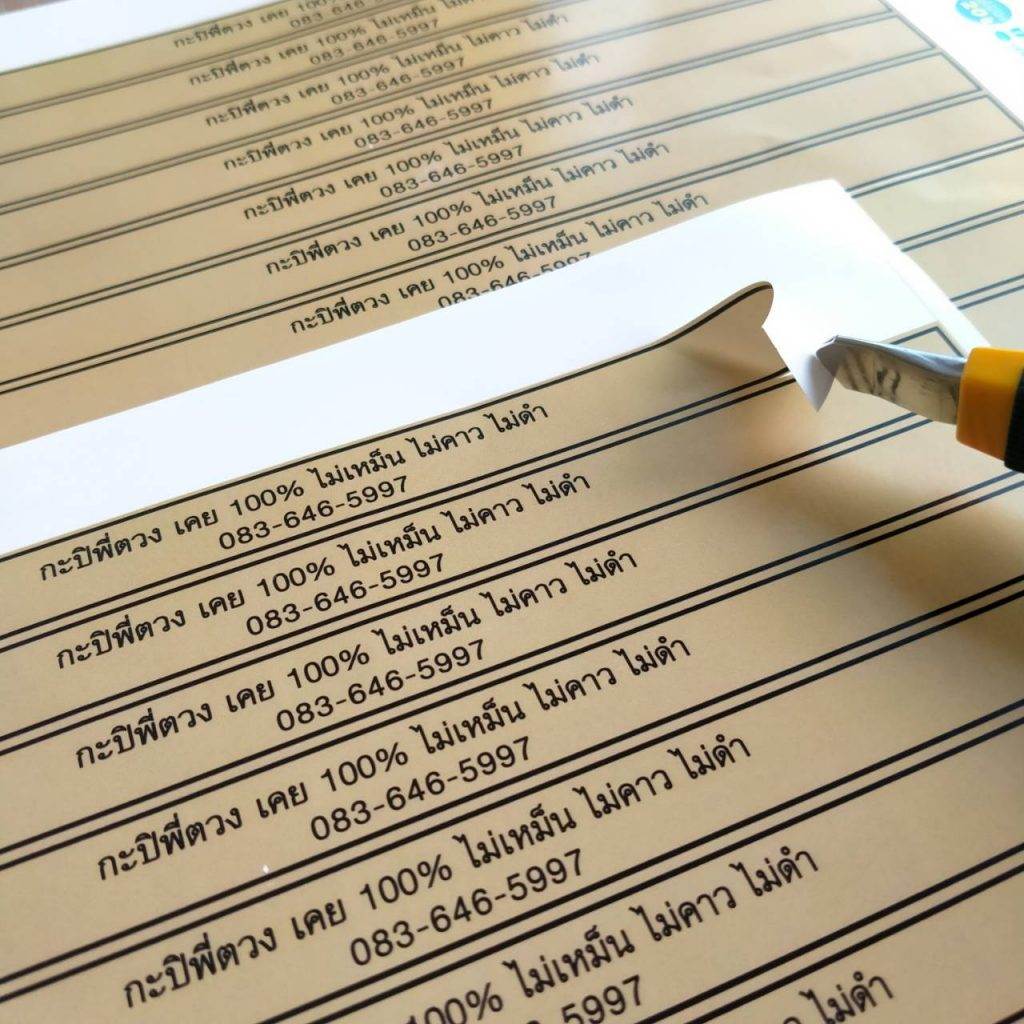 กะปิพี่ตวง เคย 100%
083-646-5997
กะปิพี่ตวง เคย 100% ไม่เหม็น ไม่คาว ไม่ดำ
083-646-5997
กะปิพี่ตวง เคย 100% ไม่เหม็น ไม่คาว ไม่ดำ
083-646-5997
กะปิพี่ตวง เคย 100% ไม่เหม็น ไม่คาว ไม่ดำ
083-646-5997
กะปิพี่ตวง เคย 100% ไม่เหม็น ไม่คาว ไม่ดำ
083-646-5997
กะปิพี่ตวง เคย 100% ไม่เหม็น ไม่คาว ไม่ดำ
083-646-5997
กะปิพี่ตวง เคย 100% ไม่เหม็น ไม่คาว ไม่ดำ
083-646-5997
กะปิพี่ตวง เคย 100% ไม่เหม็น ไม่คาว ไม่ดำ
083-646-5997
กะปิพี่ตวง เคย 100% ไม่เหม็น ไม่คาว ไม่ดำ
083-646-5997
กะปิพี่ตวง เคย 100% ไม่เหม็น ไม่คาว ไม่ดำ
083-646-5997
กะปิพี่ตวง เคย 100% ไม่เหม็น ไม่คาว ไม่ดำ
083-646-5997
กะปิพี่ตวง เคย 100% ไม่เหม็น ไม่คาว ไม่ดำ
083-646-5997
100% ไม่เหม็น ไม่คาว ไม่ดำ
083-646-5997
ไม่คาว ไม่ดำ